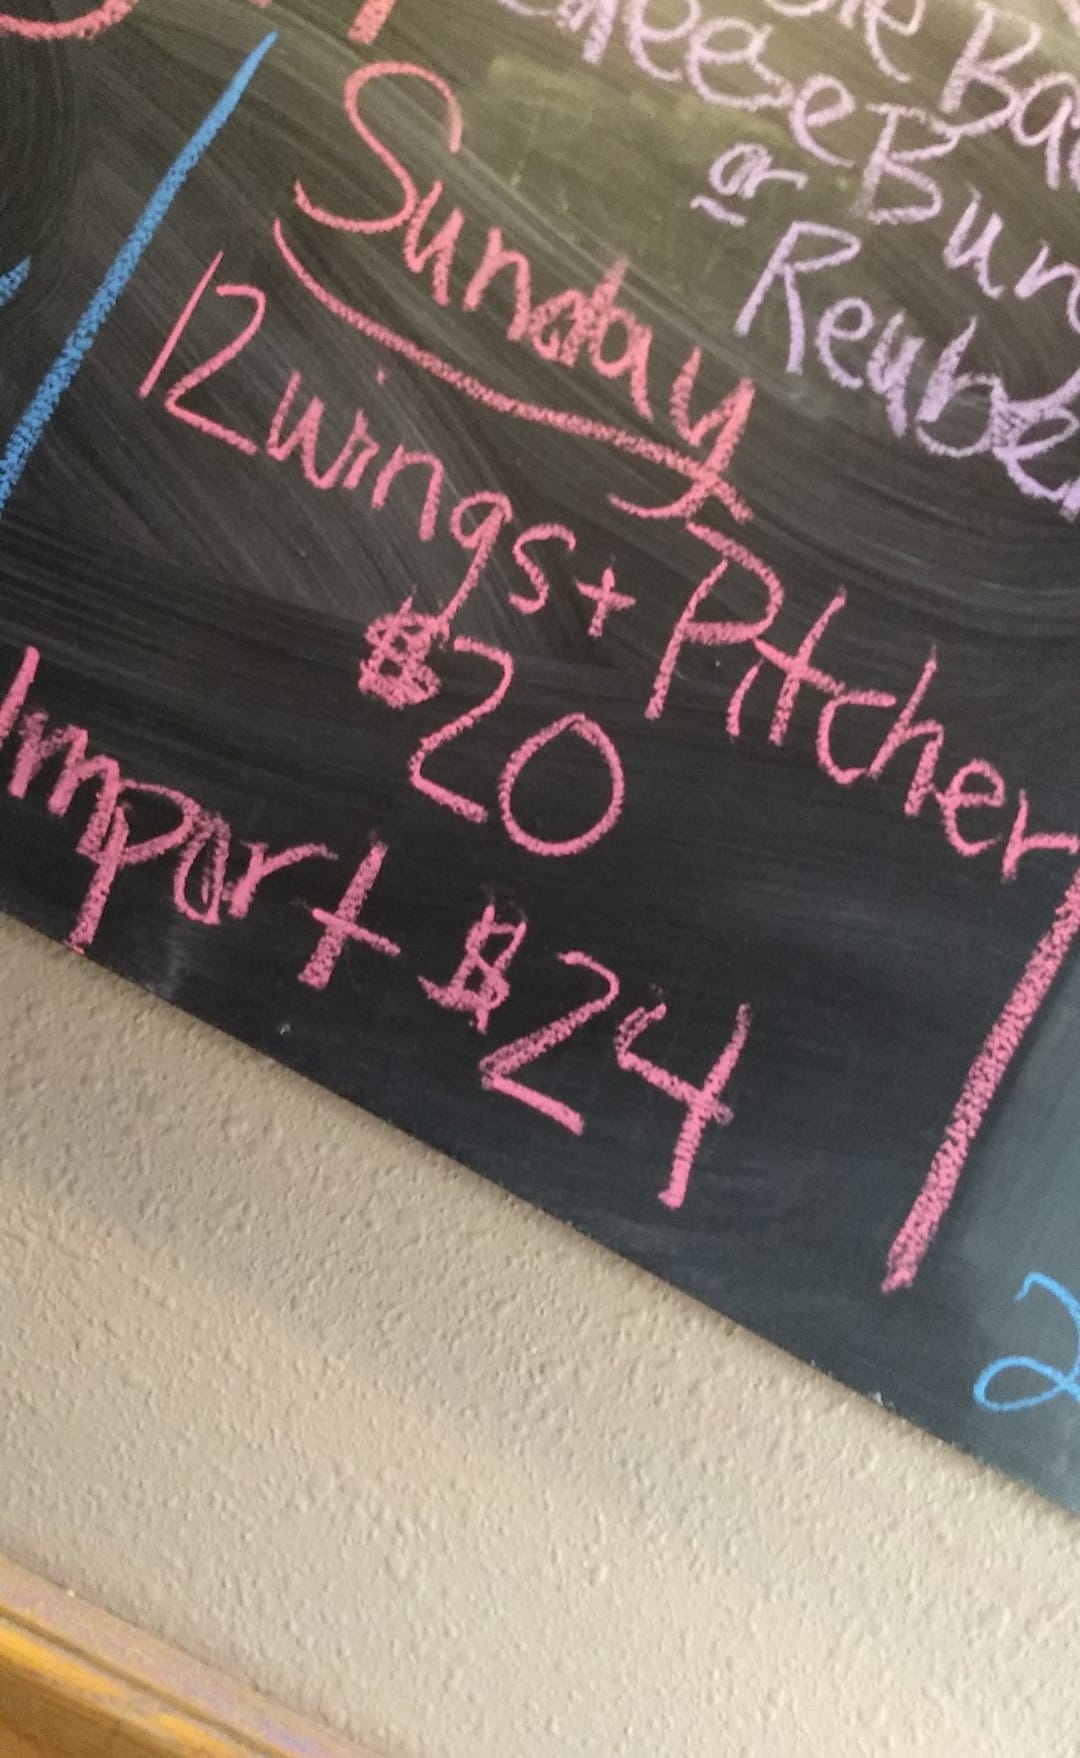 Cheese Bur
or
Reuben
Sunday
12 wings + Pitcher
$20
Import $24
2